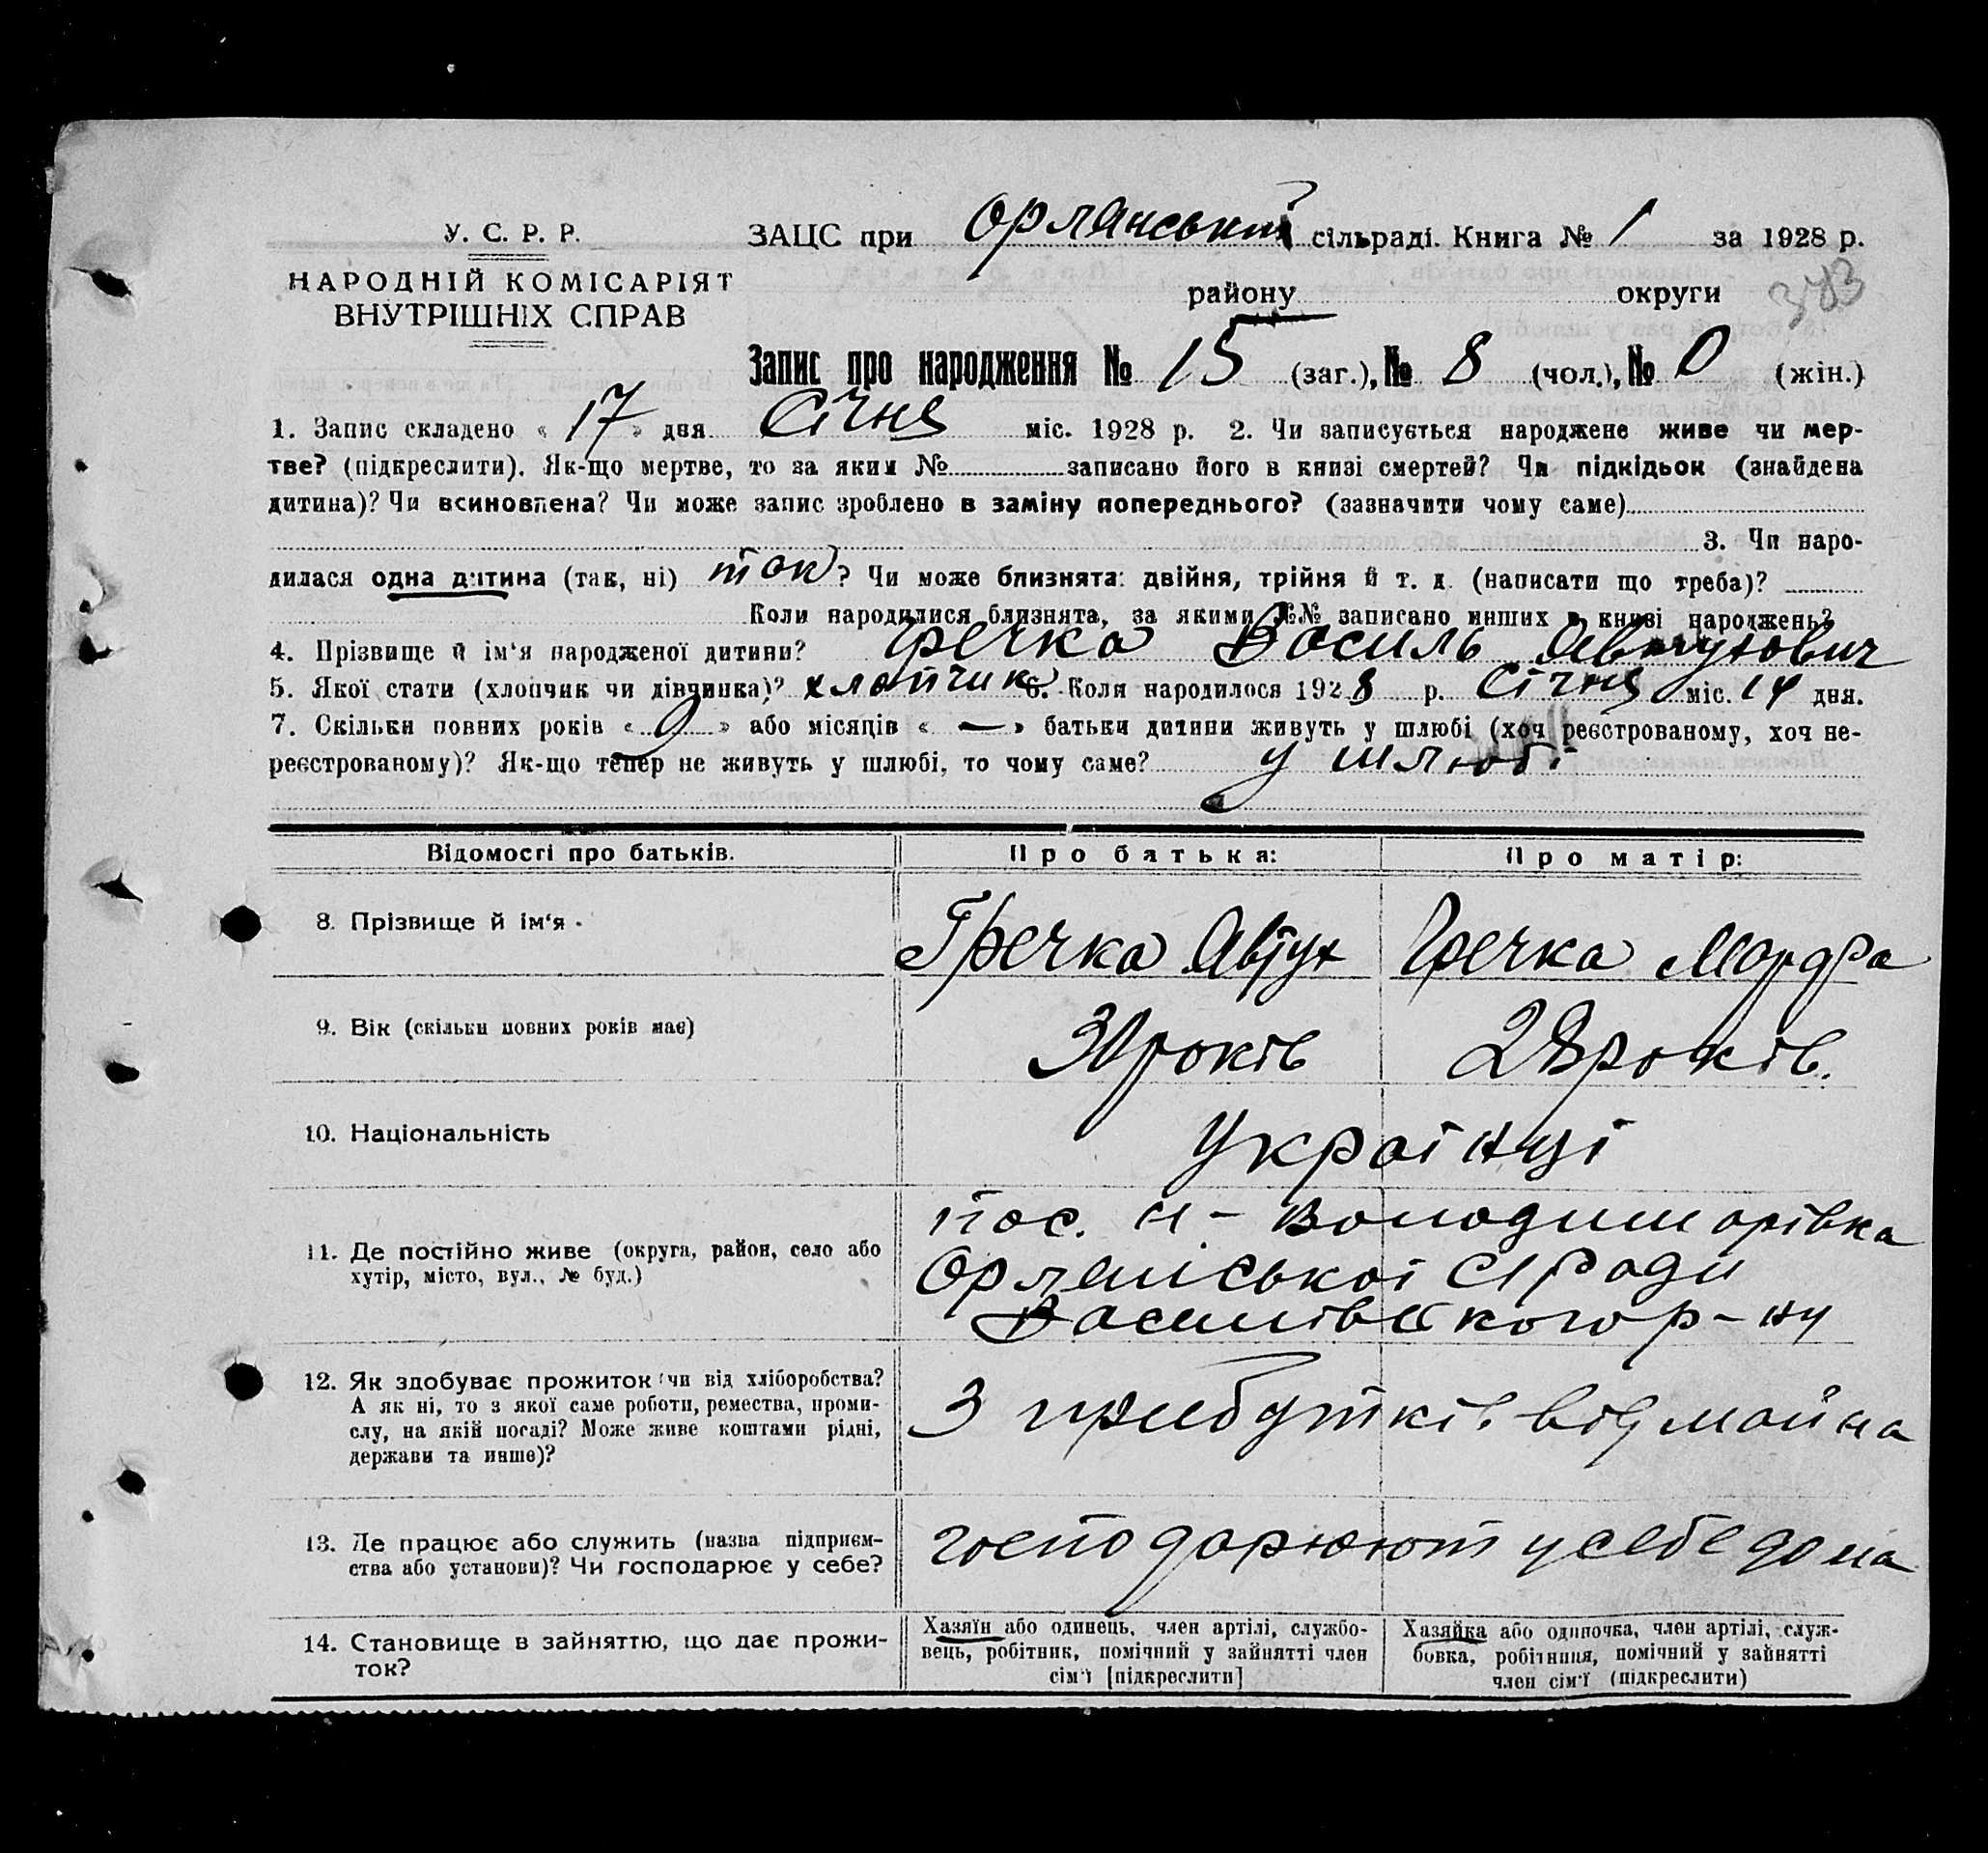 У. С. Р. Р.
НАРОДНІЙ КОМІСАРІЯТ
ВНУТРІШНІХ СПРАВ
ЗАЦС при Орлянській сільраді. Книга № 1 за 1928 р.
району округи
Запис про народження № 15 (заг.), № 8 (чол.), № 0 (жін.)
1. Запис складено « 17 » дня Січня міс. 1928 р. 2. Чи записується народжене живе чи мер-
тве? (підкреслити). Як-що мертве, то за яким № записано його в книзі смертей? Чи підкідьок (знайдена
дитина)? Чи всиновлена? Чи може запис зроблено в заміну попереднього? (зазначити чому саме)
3. Чи наро-
дилася одна дитина (так, ні) так? Чи може близнята: двійня, трійня й т. д. (написати що треба)?
Коли народилися близнята, за якими №№ записано инших в книзі народжень?
4. Прізвище й ім‘я народженої дитини? Гречка Василь Явтухович
5. Якої стати (хлопчик чи дівчинка)? хлопчик 6. Коли народилося 1928 р. Січня міс. 14 дня.
7. Скільки повних років « 9 » або місяців « — » батьки дитини живуть у шлюбі (хоч реєстрованому, хоч не-
реєстрованому)? Як-що тепер не живуть у шлюбі, то чому саме? у шлюбі
Відомості про батьків. Про батька: Про матір:
8. Прізвище й ім‘я Гречка Явтух Гречка Марфа
9. Вік (скільки повних років має) 30 років 28 років.
10. Національність Українці
11. Де постійно живе (округа, район, село або
хутір, місто, вул., № буд.)
пос. Н-Володимирівка
Орлянської С/Ради
Василівського р-ну
12. Як здобуває прожиток чи від хліборобства?
А як ні, то з якої саме роботи, ремества, проми-
слу, на якій посаді? Може живе коштами рідні,
держави та инше)?
З прибутків від майна
13. Де працює або служить (назва підприєм-
ства або установи)? Чи господарює у себе?
господарюют у себе дома
14. Становище в зайняттю, що дає прожи-
ток?
Хазяїн або одинець, член артілі, службо-
вець, робітник, помічний у зайнятті член
сім‘ї [підкреслити]
Хазяйка або одиночка, член артілі, служ-
бовка, робітниця, помічний у зайнятті
член сім‘ї (підкреслити)